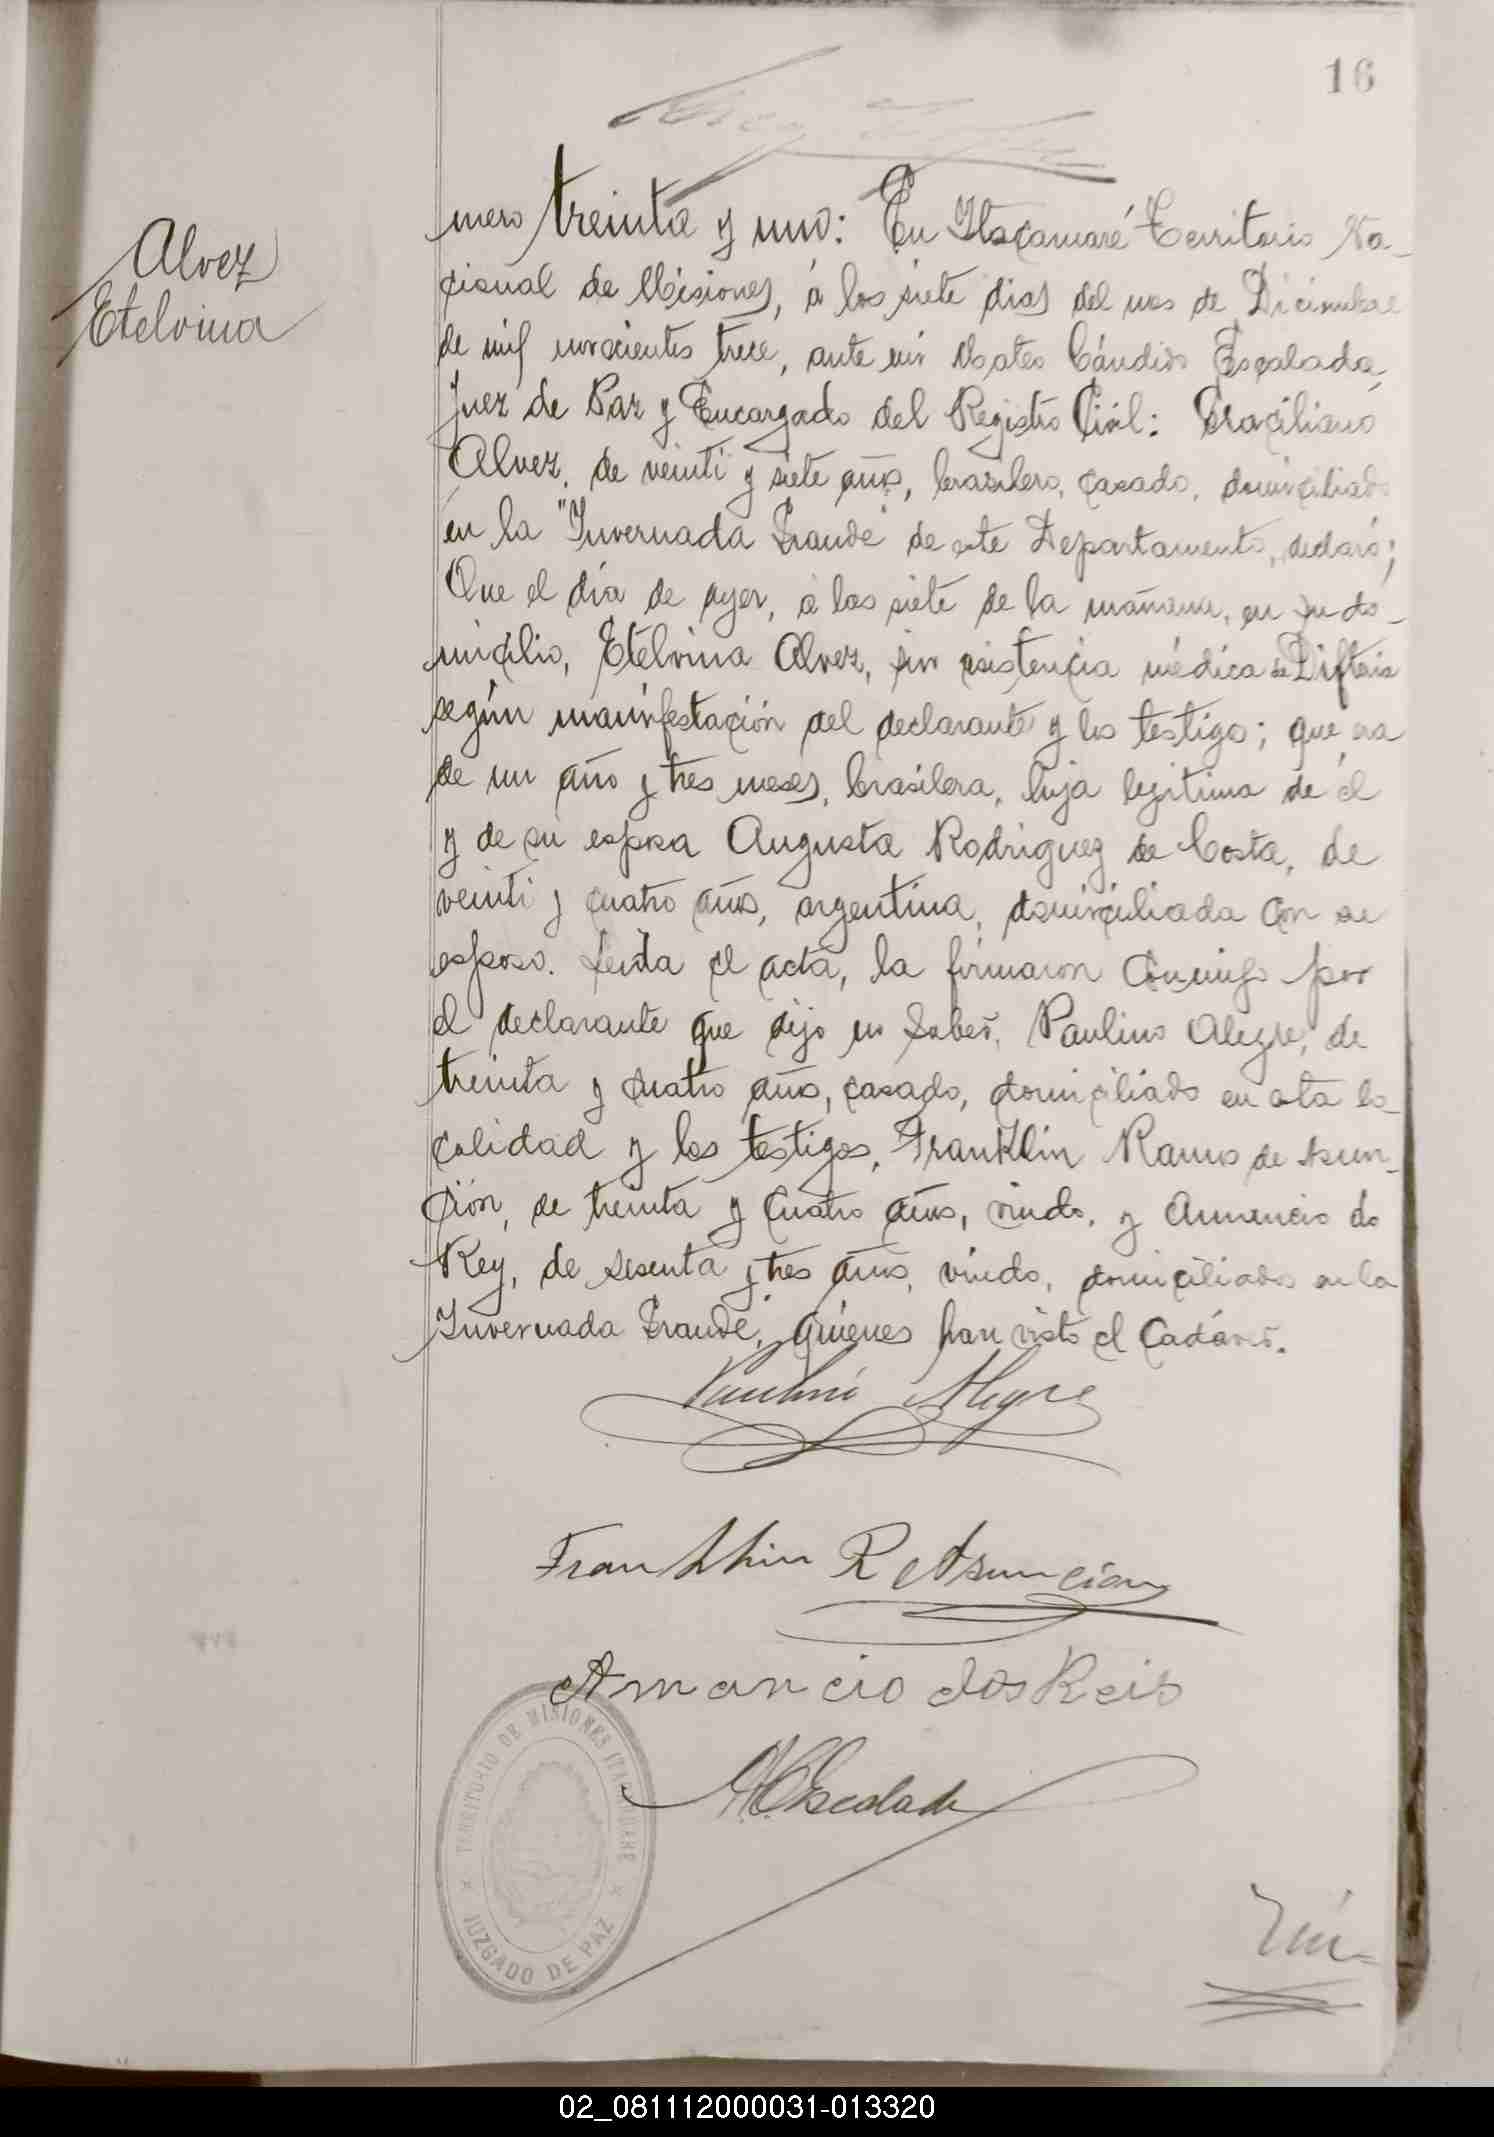 16
Alvez
Etelvina
mero treinta y uno: En Itacamaré Territorio Na-
cional de Misiones, á los siete dias del mes de Diciembre
de mil novecientos trece, ante mi Mateo Cándido Escalada,
Juez de Paz y Encargado del Registro Civil: Graciliano
Alvez, de veinti y siete años, brasilero, casado, domiciliado
en la "Invernada Grande" de este Departamento, declaró;
Que el día de ayer, á las siete de la mañana, en su do-
micilio, Etelvina Alvez, sin asistencia médica de Difteria
según manifestación del declarante y los testigo; que era
de un año y tres meses, brasilera, hija legitima de él
y de su esposa Augusta Rodriguez de Costa, de
veinti y cuatro años, argentina, domiciliada con su
esposo. Leida el acta, la firmaron conmigo por
el declarante que dijo no saber, Paulino Alegre, de
treinta y cuatro años, casado, domiciliado en esta lo-
calidad y los testigos, Franklin Ramos de Asun-
ción, de treinta y cuatro años, viudo, y Amancio do
Rey, de sesenta y tres años, viudo, domiciliados en la
Invernada Grande, quienes han visto el cadáver.
Paulino Alegre
Franklin R Asuncion
Amancio dos Reis
M.C. Escalada
TERRITORIO DE MISIONES
JUZGADO DE PAZ
Nú-
02_081112000031-013320